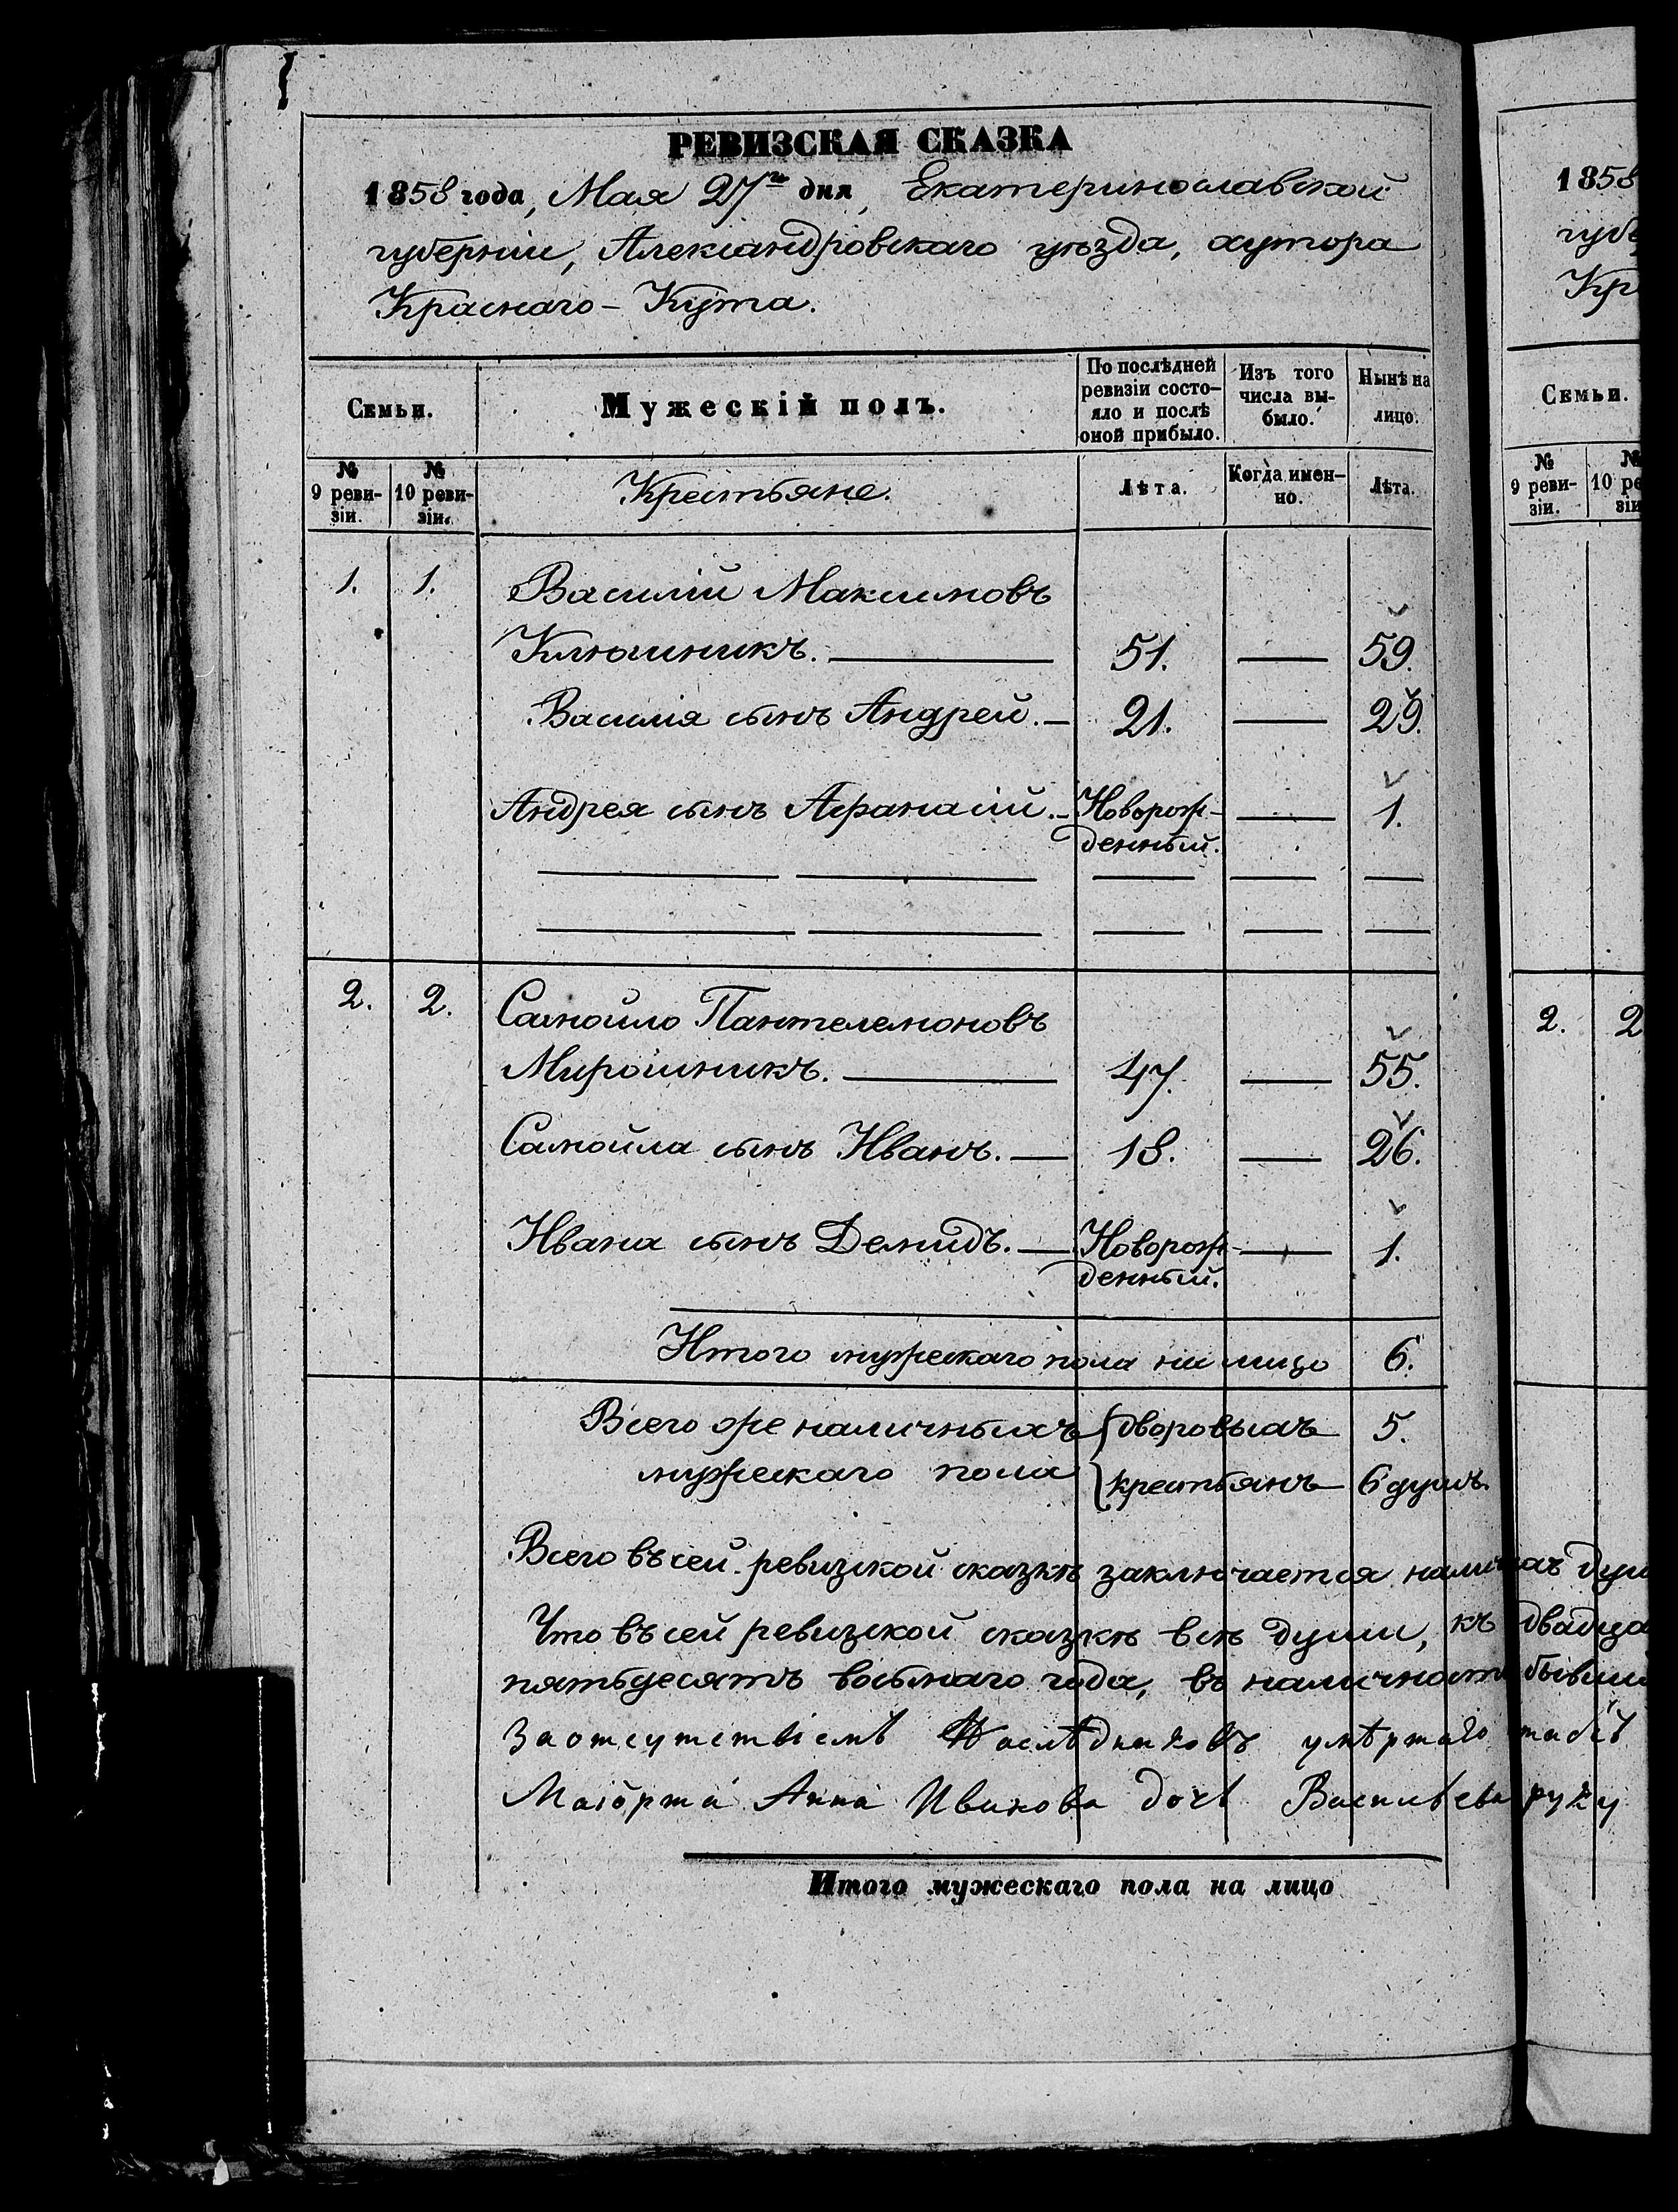 РЕВИЗСКАЯ СКАЗКА
1858 года, Мая 27го дня, Екатеринославской
губерніи, Александровскаго уѣзда, хутора
Краснаго-Кута.
Семьи.
Мужескій полъ.
По послѣдней ревизіи состо-
яло и послѣ
оной прибыло.
Изъ того
числа вы-
было.
Нынѣ на
лицо.
№ 9 реви-
зіи.
№ 10 реви-
зіи.
Крестьяне.
Лѣта.
Когда имен-
но.
Лѣта.
1. 1. Василій Максимовъ
Клюшникъ. — 51. — 59.
Василія сынъ Андрей. — 21. — 29.
Андрея сынъ Афанасій. — Новорож-
денный. — 1.
2. 2. Самойло Пантелемоновъ
Мирошникъ. — 47. — 55.
Самойла сынъ Иванъ. — 18. — 26.
Ивана сынъ Демидъ. — Новорож-
денный. — 1.
Итого мужескаго пола на лицо 6.
Всего же наличныхъ { дворовыхъ 5.
мужескаго пола { крестьянъ 6 душъ.
Всего въ сей ревизской сказкѣ заключается душ
Что въ сей ревизской сказкѣ всѣ души, къ двадца
пятьдесятъ восьмаго года, въ наличност бывши
За отсутствіемъ Наслѣдниковъ умѣршаго
Маіорша Анна Иванова дочь Васильева руку
Итого мужескаго пола на лицо
1858
губе
Кр
Семьи.
№ 9 реви-
зіи.
№ 10 ре
зіи
2. 2